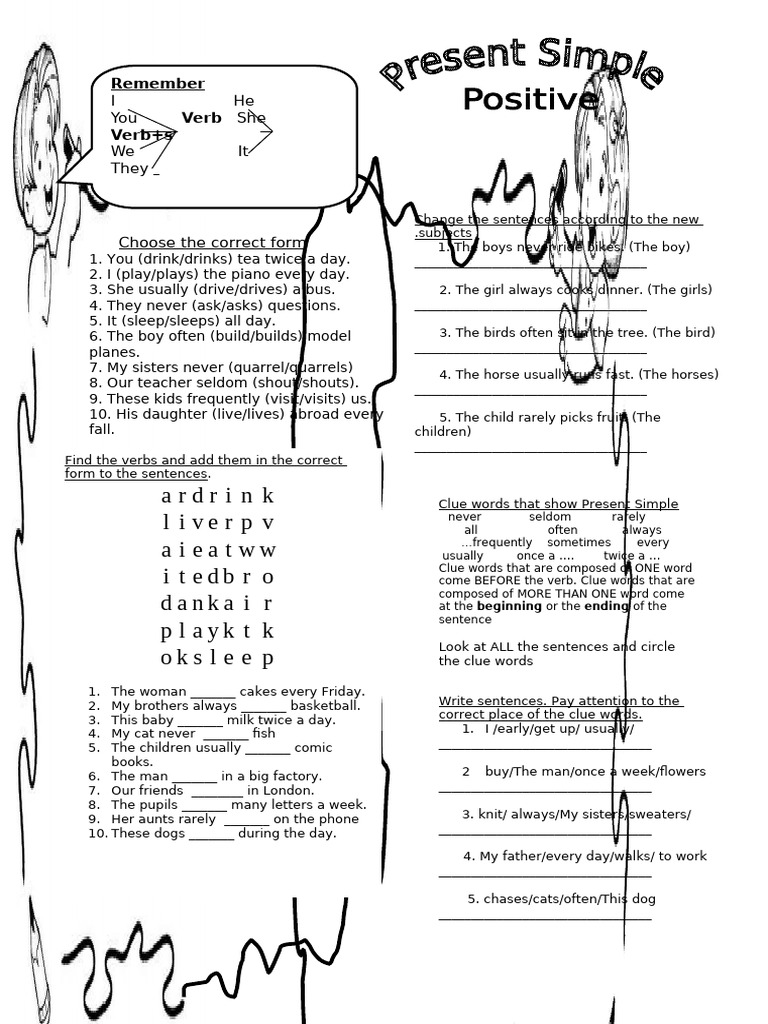 Present Simple
Positive
Remember
I He
You Verb She
Verb+s
We It
They _
Choose the correct form
1. You (drink/drinks) tea twice a day.
2. I (play/plays) the piano every day.
3. She usually (drive/drives) a bus.
4. They never (ask/asks) questions.
5. It (sleep/sleeps) all day.
6. The boy often (build/builds) model
planes.
7. My sisters never (quarrel/quarrels)
8. Our teacher seldom (shout/shouts).
9. These kids frequently (visit/visits) us.
10. His daughter (live/lives) abroad every
fall.
Find the verbs and add them in the correct
form to the sentences.
a r d r i n k
l i v e r p v
a i e a t w w
i t e d b r o
d a n k a i r
p l a y k t k
o k s l e e p
1. The woman _______ cakes every Friday.
2. My brothers always _______ basketball.
3. This baby _______ milk twice a day.
4. My cat never _______ fish
5. The children usually _______ comic
books.
6. The man _______ in a big factory.
7. Our friends ________ in London.
8. The pupils _______ many letters a week.
9. Her aunts rarely _______ on the phone
10. These dogs _______ during the day.
Change the sentences according to the new
.subjects
1. The boys never ride bikes. (The boy)
______________________________
2. The girl always cooks dinner. (The girls)
______________________________
3. The birds often sit in the tree. (The bird)
______________________________
4. The horse usually runs fast. (The horses)
______________________________
5. The child rarely picks fruit. (The
children)
______________________________
Clue words that show Present Simple
never seldom rarely
all often always
…frequently sometimes every
usually once a .... twice a ...
Clue words that are composed of ONE word
come BEFORE the verb. Clue words that are
composed of MORE THAN ONE word come
at the beginning or the ending of the
sentence
Look at ALL the sentences and circle
the clue words
Write sentences. Pay attention to the
correct place of the clue words.
1. I /early/get up/ usually/
______________________________
2 buy/The man/once a week/flowers
______________________________
3. knit/ always/My sisters/sweaters/
______________________________
4. My father/every day/walks/ to work
______________________________
5. chases/cats/often/This dog
______________________________